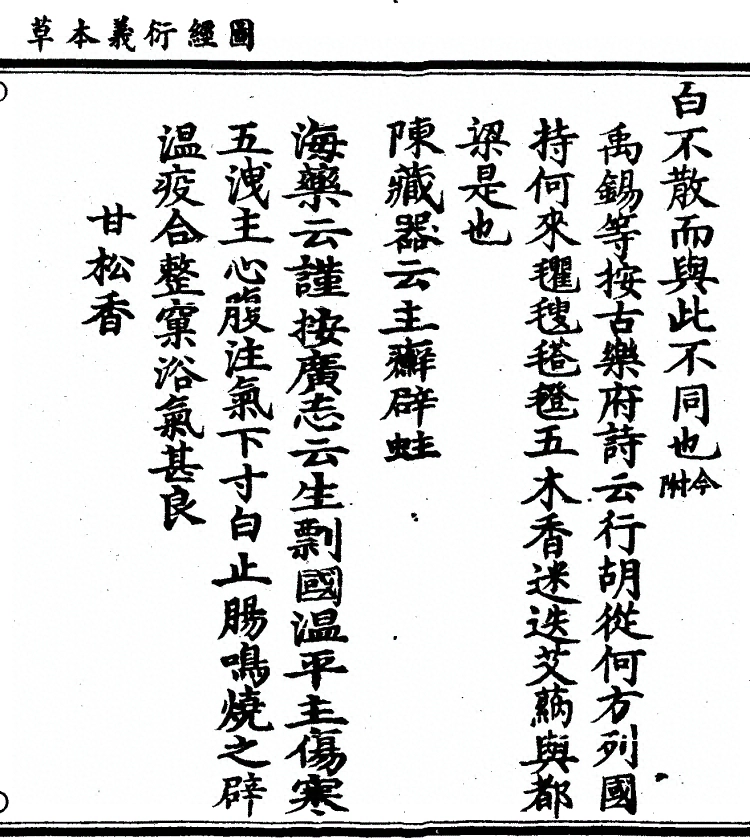 圖經衍義本草
白不散而與此不同也今附
禹錫等按古樂府詩云行胡從何方列國
持何來氍毹㲪㲪五木香迷迭艾蒳與都
梁是也
陳藏器云主癬辟蛀
海藥云謹按廣志云生剽國温平主傷寒
五洩主心腹注氣下寸白止腸鳴燒之辟
温疫合整窠浴氣甚良
甘松香